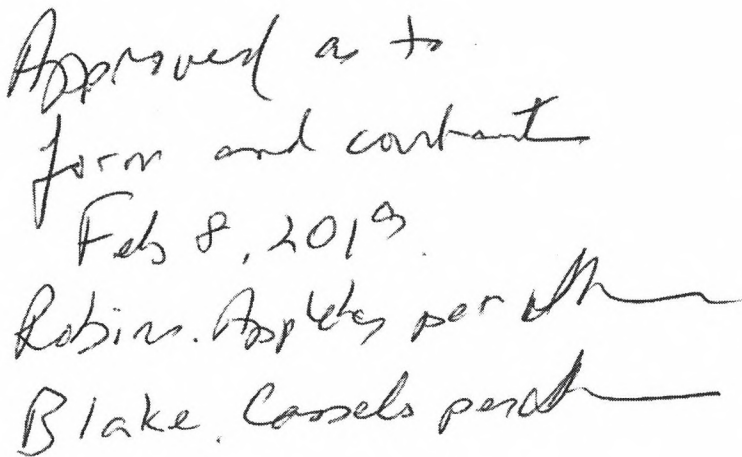 Approved as to
form and content
Feb 8, 2019
Robins. Appleby per
Blake. Cassels per